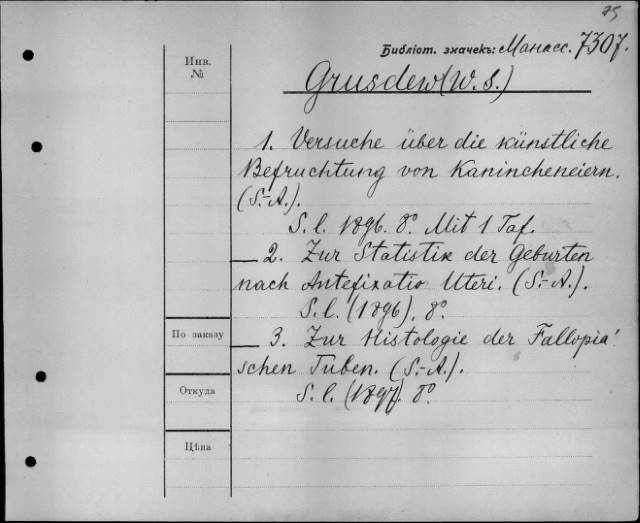 75
Библіот. значекъ: Манасс. 7307.
Инв.
№
Grusdew (W. S.)
1. Versuche über die künstliche
Befruchtung von Kanincheneiern.
(S.-A.).
S. l. 1896. 8º. Mit 1 Taf.
— 2. Zur Statistik der Geburten
nach Antefixatio Uteri. (S.-A.).
S. l. (1896). 8º.
По заказу
— 3. Zur Histologie der Fallopia'
schen Tuben. (S.-A.).
Откуда
S. l. (1897). 8º.
Цѣна